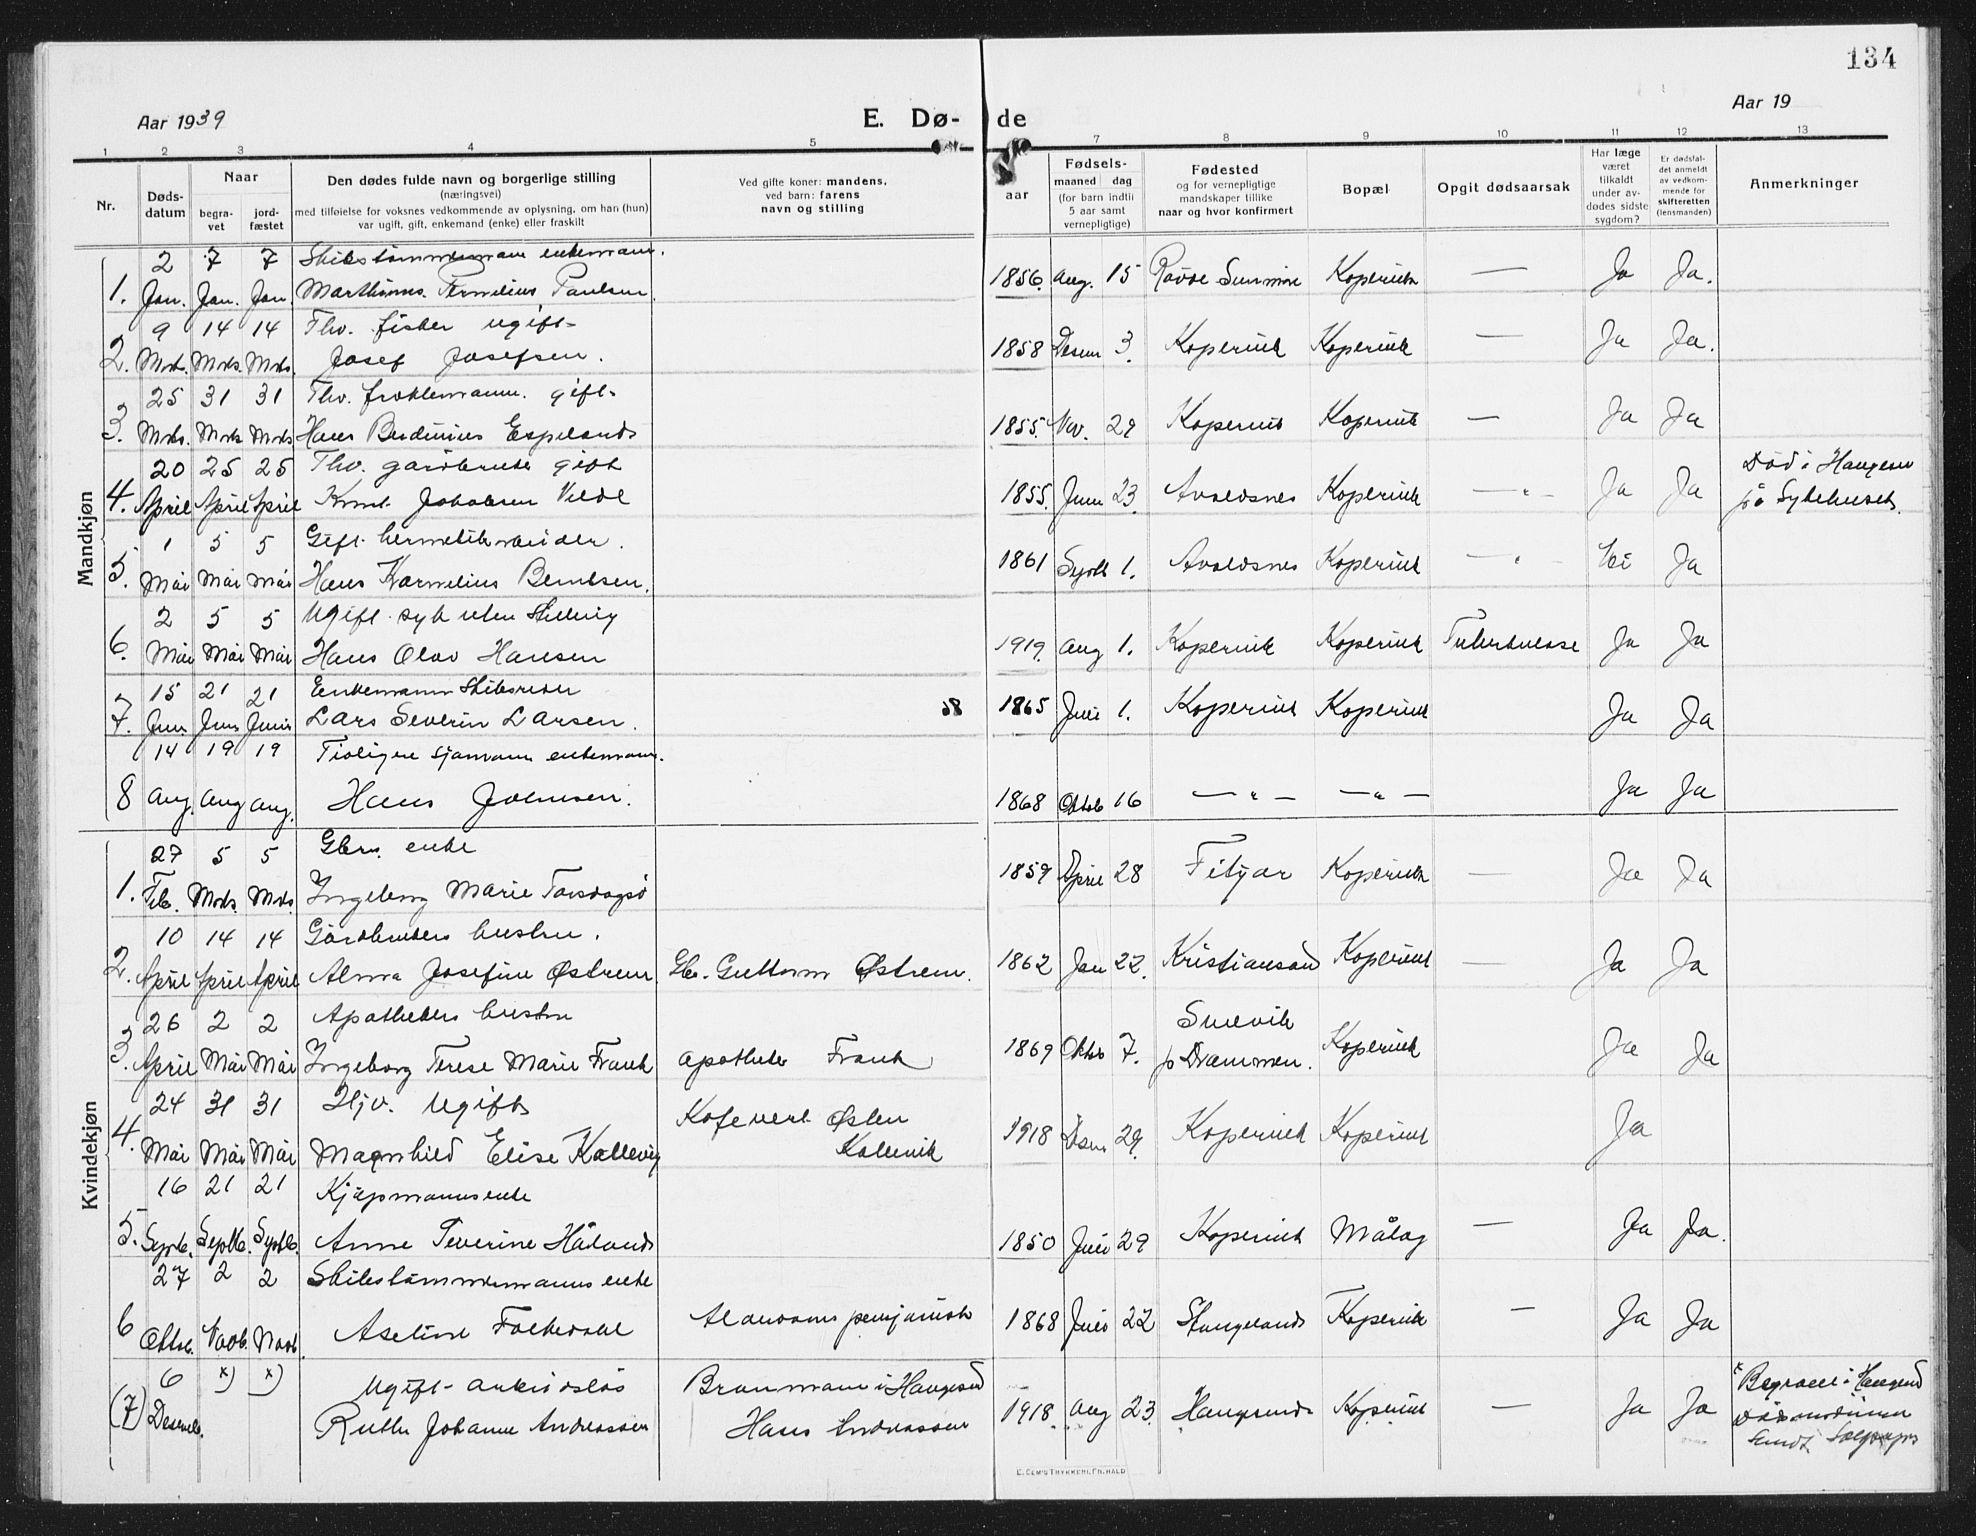 134
Aar 1939
E. Dø-
de
Aar 19
1 2 3 4 5 7 8 9 10 11 12 13
Nr.
Døds-
datum
Naar
begra-
vet
jord-
fæstet
Den dødes fulde navn og borgerlige stilling
(næringsvei)
med tilføielse for voksnes vedkommende av oplysning, om han (hun)
var ugift, gift, enkemand (enke) eller fraskilt
Ved gifte koner: mandens,
ved barn: farens
navn og stilling
aar
Fødsels-
maaned dag
(for barn indtil
5 aar samt
vernepligtige)
Fødested
og for vernepligtige
mandskaper tillike
naar og hvor konfirmert
Bopæl
Opgit dødsaarsak
Har læge
været
tilkaldt
under av-
dødes sidste
sygdom?
Er dødsfal-
det anmeldt
av vedkom-
mende for
skifteretten
(lensmanden)
Anmerkninger
Mandkjøn
2 7 7 Skibstømmermann enkemann.
1. Jan. Jan. Jan. Paulsen 1856 Aug. 15 Kopervik — Ja Ja.
9 14 14 Fhv. fisker ugift
2. Mrds. Mrds. Mrds. Josef Josefsen. 1858 Desem 3. Kopervik Kopervik — Ja Ja.
25 31 31 Fhv. gift
3. Mrds. Mrds Mrds Hans Espeland 1855. Nov. 29 Kopervik Kopervik — Ja Ja
20 25 25 Fhv. gårdbruker gift
4. April April April Knut Velde 1855. Juni 23. Avaldsnes Kopervik — " — Ja Ja Død i Haugesu
på Sykehuset.
1 5 5 Gift
5. Mai Mai Mai Hans Kornelius Berntsen. 1861 Septb 1. Avaldsnes Kopervik — " — Nei Ja
2 5 5 Ugift. syk uten Stilling
6. Mai Mai Mai Hans Olav Hansen 1919. Aug 1. Kopervik Kopervik Tuberkulose Ja Ja
15 21 21 Enkemann Skibsreder
7. Juni Juni Juni Lars Severin Larsen. 18 1865 Juli 1. Kopervik Kopervik Ja Ja
14 19 19 Tidligere sjømann enkemann.
8 Aug. Aug Aug. Hans Johnsen. 1868 Oktob 16 — " — — " — Ja Ja
Kvindekjøn
27 5 5 Gbrs. enke
1. Feb. Mrds. Mrds. Ingeborg Marie 1859 April 28 Fitjar Kopervik — Ja Ja
10 14 14 Gårdbrukers hustru.
2. April April April Alma Josefine Østrem Gbr. Guttorm Østrem. 1862 Jan 22. Kristiansand Kopervik — Ja Ja
26 2 2 Apothekers hustru
3. April Mai Mai Ingeborg Terese Marie Frank apotheker Frank 1869 Oktb 7. Snevik
p Drammen. Kopervik Ja Ja
24 31 31 Hjv. Ugift
4. Mai Mai Mai Magnhild Elise Kallevig Kafevert Østen
Kallevik 1918 Desm 29. Kopervik Kopervik Ja
16 21 21 Kjøpmannsenke
5. Septb. Septb. Septb. Anne Severine Håland 1850 Juli 29 Kopervik — Ja Ja.
27 2 2 Skibstømmermanns enke
6 Oktob. Novb. Novb. Aseline Folkedahl 1868 Juli 22 Stangeland Kopervik — Ja Ja
6 x) x) Ugift arbeidsløs
(7) Desemb. Ruth Johanne Andreassen Brannmann i Haugesund
Hans Andreassen 1918. Aug 23. Haugesund Kopervik — Ja Ja x Begravet i Haugesund
E. SEM'S TRYKKERI, FR. HALD